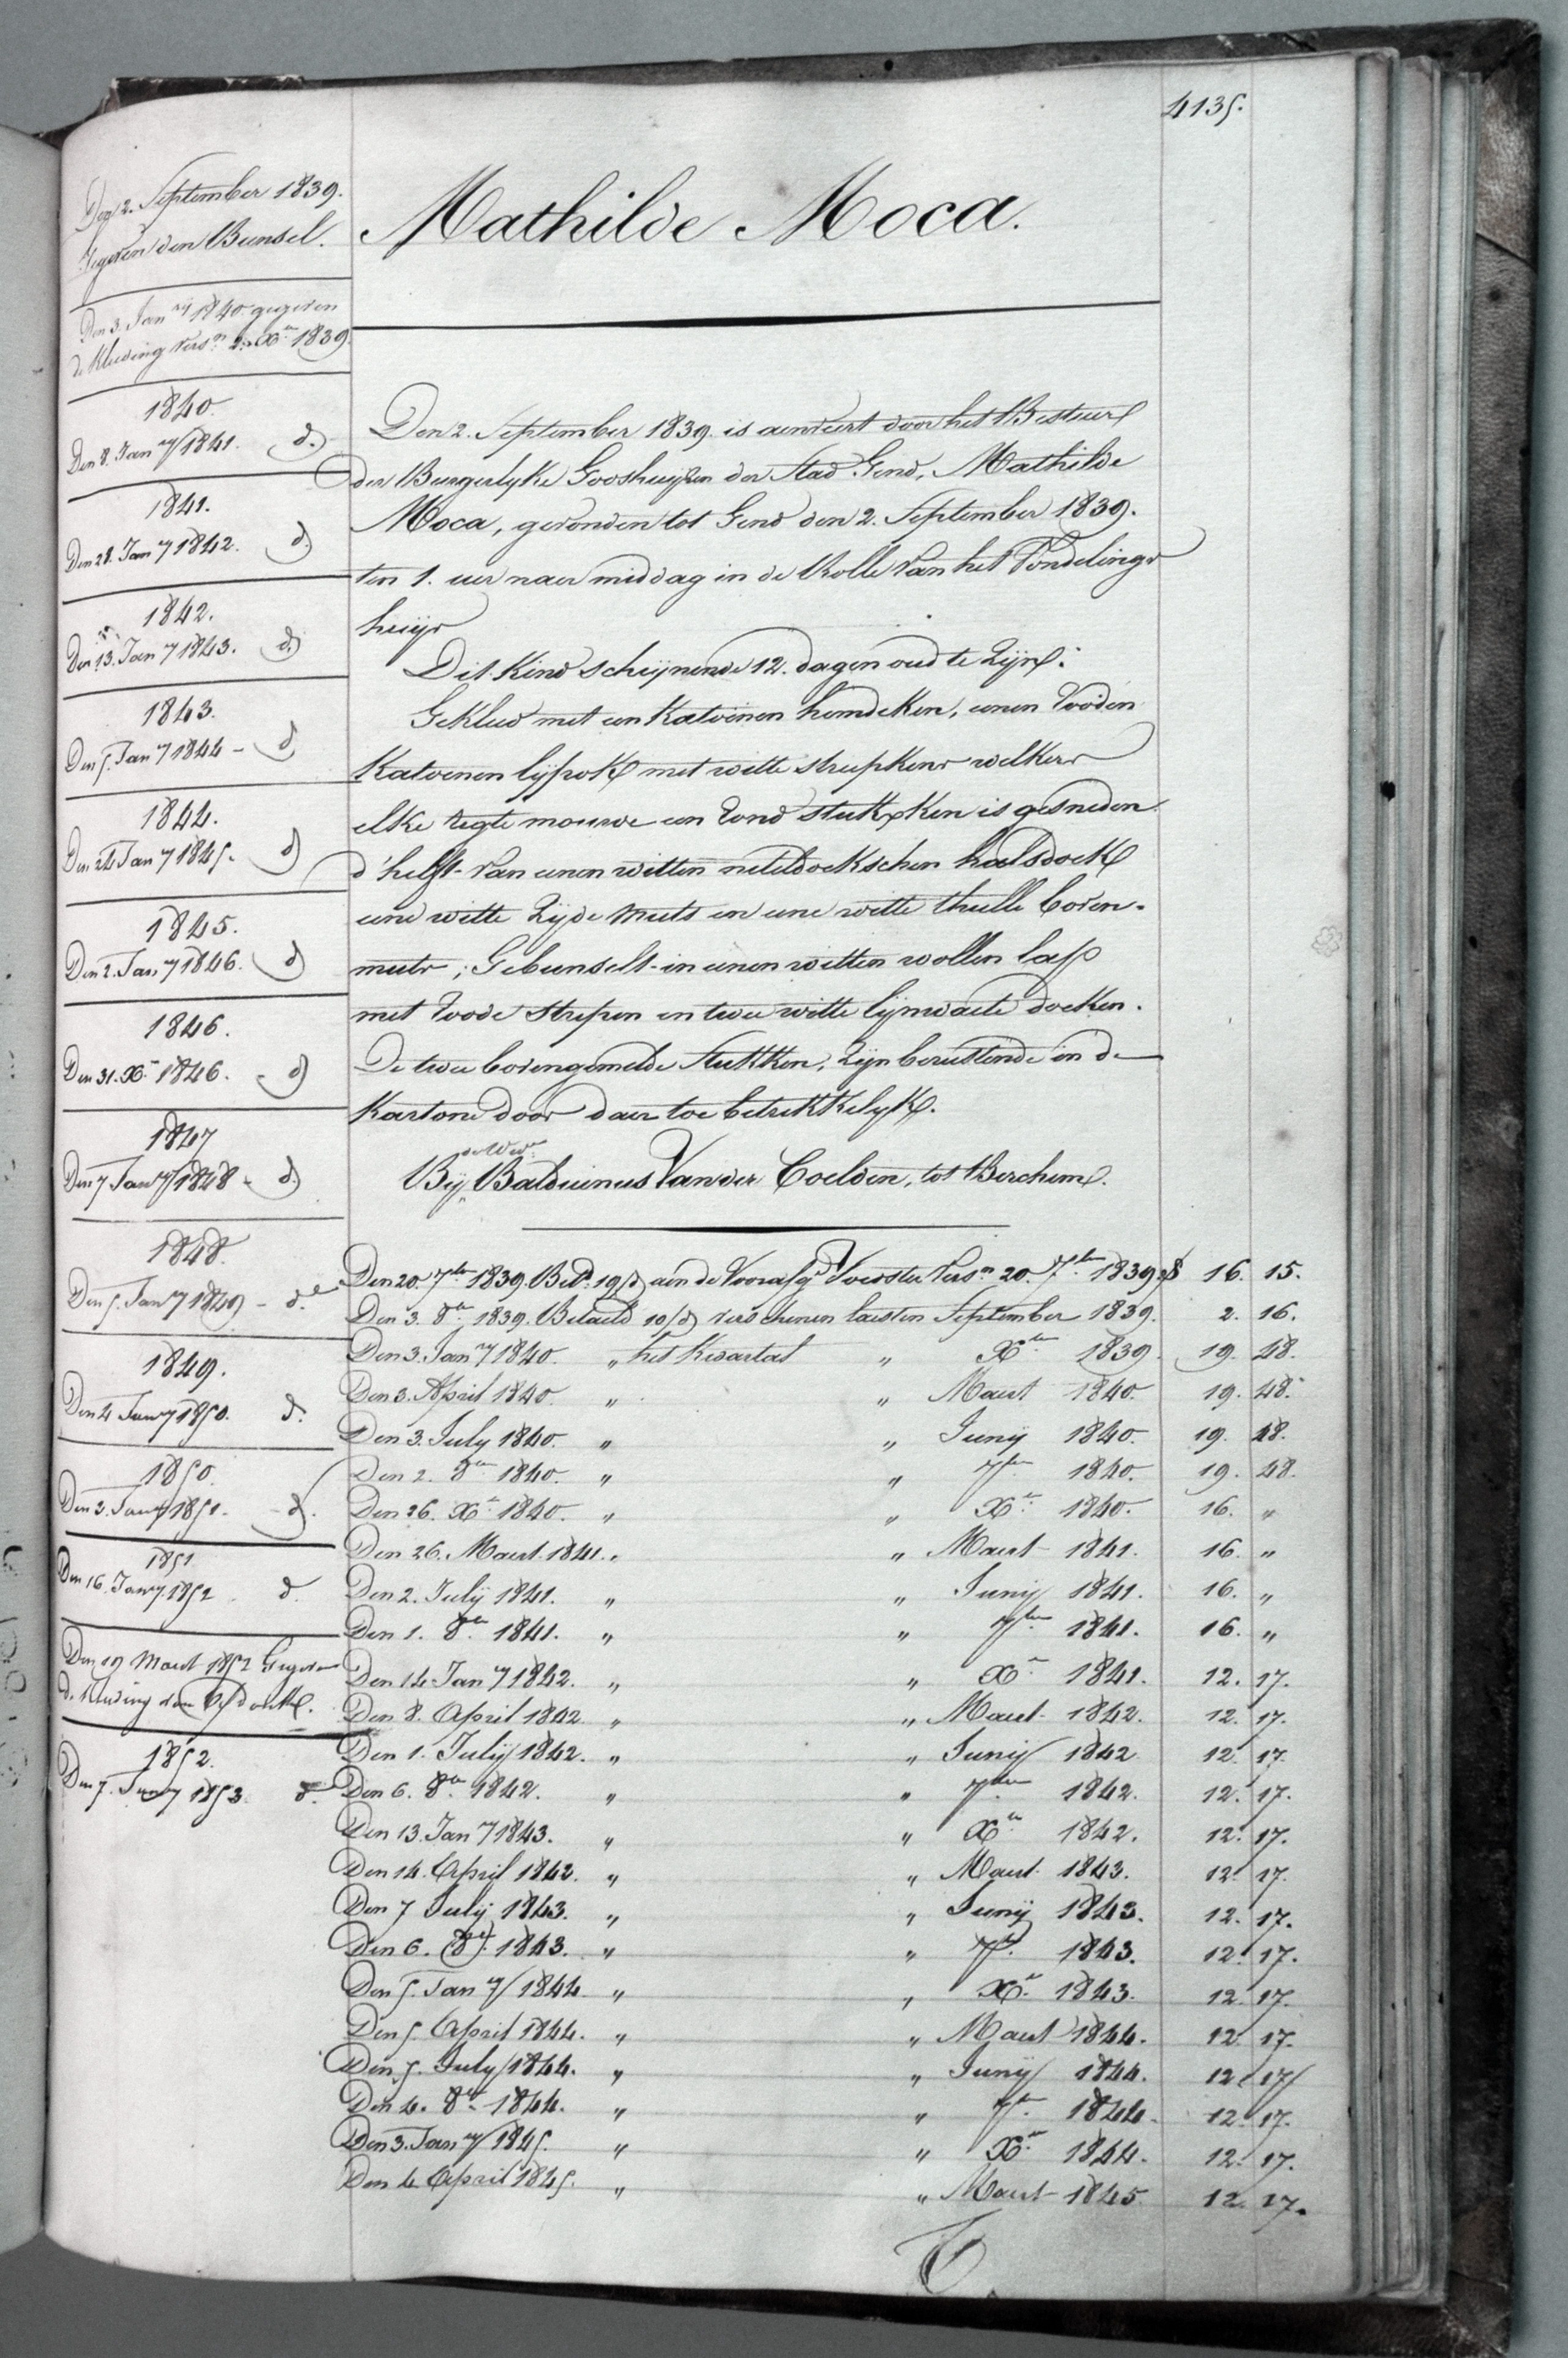 4135.
Mathilde Moca.
Den 2. September 1839.
gegeven den Bunsel.
Den 3. Janry 1840 gegeven
de Kleeding versn. 2. Xbr 1839.
1840.
Den 8. Janry 1841. d.
1841.
Den 28. Janry 1842. d.
1842.
Den 13. Janry 1843. d.
1843.
Den 5. Janry 1844 - d
1844.
Den 24 Janry 1845. d
1845.
Den 2. Janry 1846. d
1846.
Den 31. Xbr 1846. - d
1847
Den 7 Janry 1848 - d.
1848.
Den 5. Janry 1849 - de
1849.
Den 4 Janry 1850. d.
1850.
Den 3. Janry 1851. - d.
1851
Den 16. Janry 1852 d.
Den 19 Maert 1852 Gegeven
de Kleeding den
1852.
Den 7. Janry 1853. d.
Den 2. September 1839. is aenveert door het Bestuer
der Burgerlyke Godshuyzen der Stad Gend, Mathilde
Moca, gevonden tot Gend den 2. September 1839.
ten 1. uer naer middag in de Rolle van het Vondelings
huijs
Dit Kind scheijnende 12. dagen oud te zijn:
Gekleed met een Katoenen hemdeken, eenen rooden
Katoenen lijfrok met witte streepkens welkers
elke regte mouwe een rond stukxken is gesneden
d'helft van eenen witten neteldoekschen halsdoek
eene witte zijde muts en eene witte thulle boven-
muts; Gebunselt in eenen witten wollen lap
met roode strepen en twee witte lijnwaete doeken.
De twee bovengemelde stukken, zijn berustende in de
Kartone door daer toe betrekkelyk.
de Wwe
Bij Balduinus Vander Coelden, tot Berchem.
Den 20. 7ber 1839. Betd. 19/d aen de Voorafge Voedster versn 20. 7ber 1839 16. 15.
Den 3. 8br 1839. Betaeld 10/d verschenen laesten September 1839. 2. 16.
Den 3. Janry 1840. " het Kwartal " Xber 1839. 19. 48.
Den 3. April 1840. " " Maert 1840. 19. 48.
Den 3. July 1840. " " Junij 1840. 19. 48.
Den 2. 8br 1840. " " 7br 1840. 19. 48.
Den 26. Xbr 1840. " " Xbr 1840. 16. "
Den 26. Maert 1841. " " Maert 1841. 16. "
Den 2. Julij 1841. " " Junij 1841. 16. "
Den 1. 8br 1841. " " 7ber 1841. 16. "
Den 14 Janry 1842. " " Xbr 1841. 12. 17.
Den 8. April 1842. " " Maert 1842. 12. 17.
Den 1. Julij 1842. " " Junij 1842 12. 17.
Den 6. 8br 1842. " " 7ber 1842. 12. 17.
Den 13. Janry 1843. " " Xbr 1842. 12. 17.
Den 14. April 1843. " " Maert 1843. 12. 17.
Den 7 Julij 1843. " " Junij 1843. 12. 17.
Den 6. 8br 1843. " " 7br 1843. 12. 17.
Den 5. Janry 1844. " " Xbr 1843. 12. 17.
Den 5 April 1844. " " Maert 1844. 12 17.
Den 5. July 1844. " " Junij 1844. 12 17
Den 4. 8br 1844. " " 7br 1844. 12. 17.
Den 3. Janry 1845. " " Xbr 1844. 12. 17.
Den 4 April 1845. " " Maert 1845 12. 17.